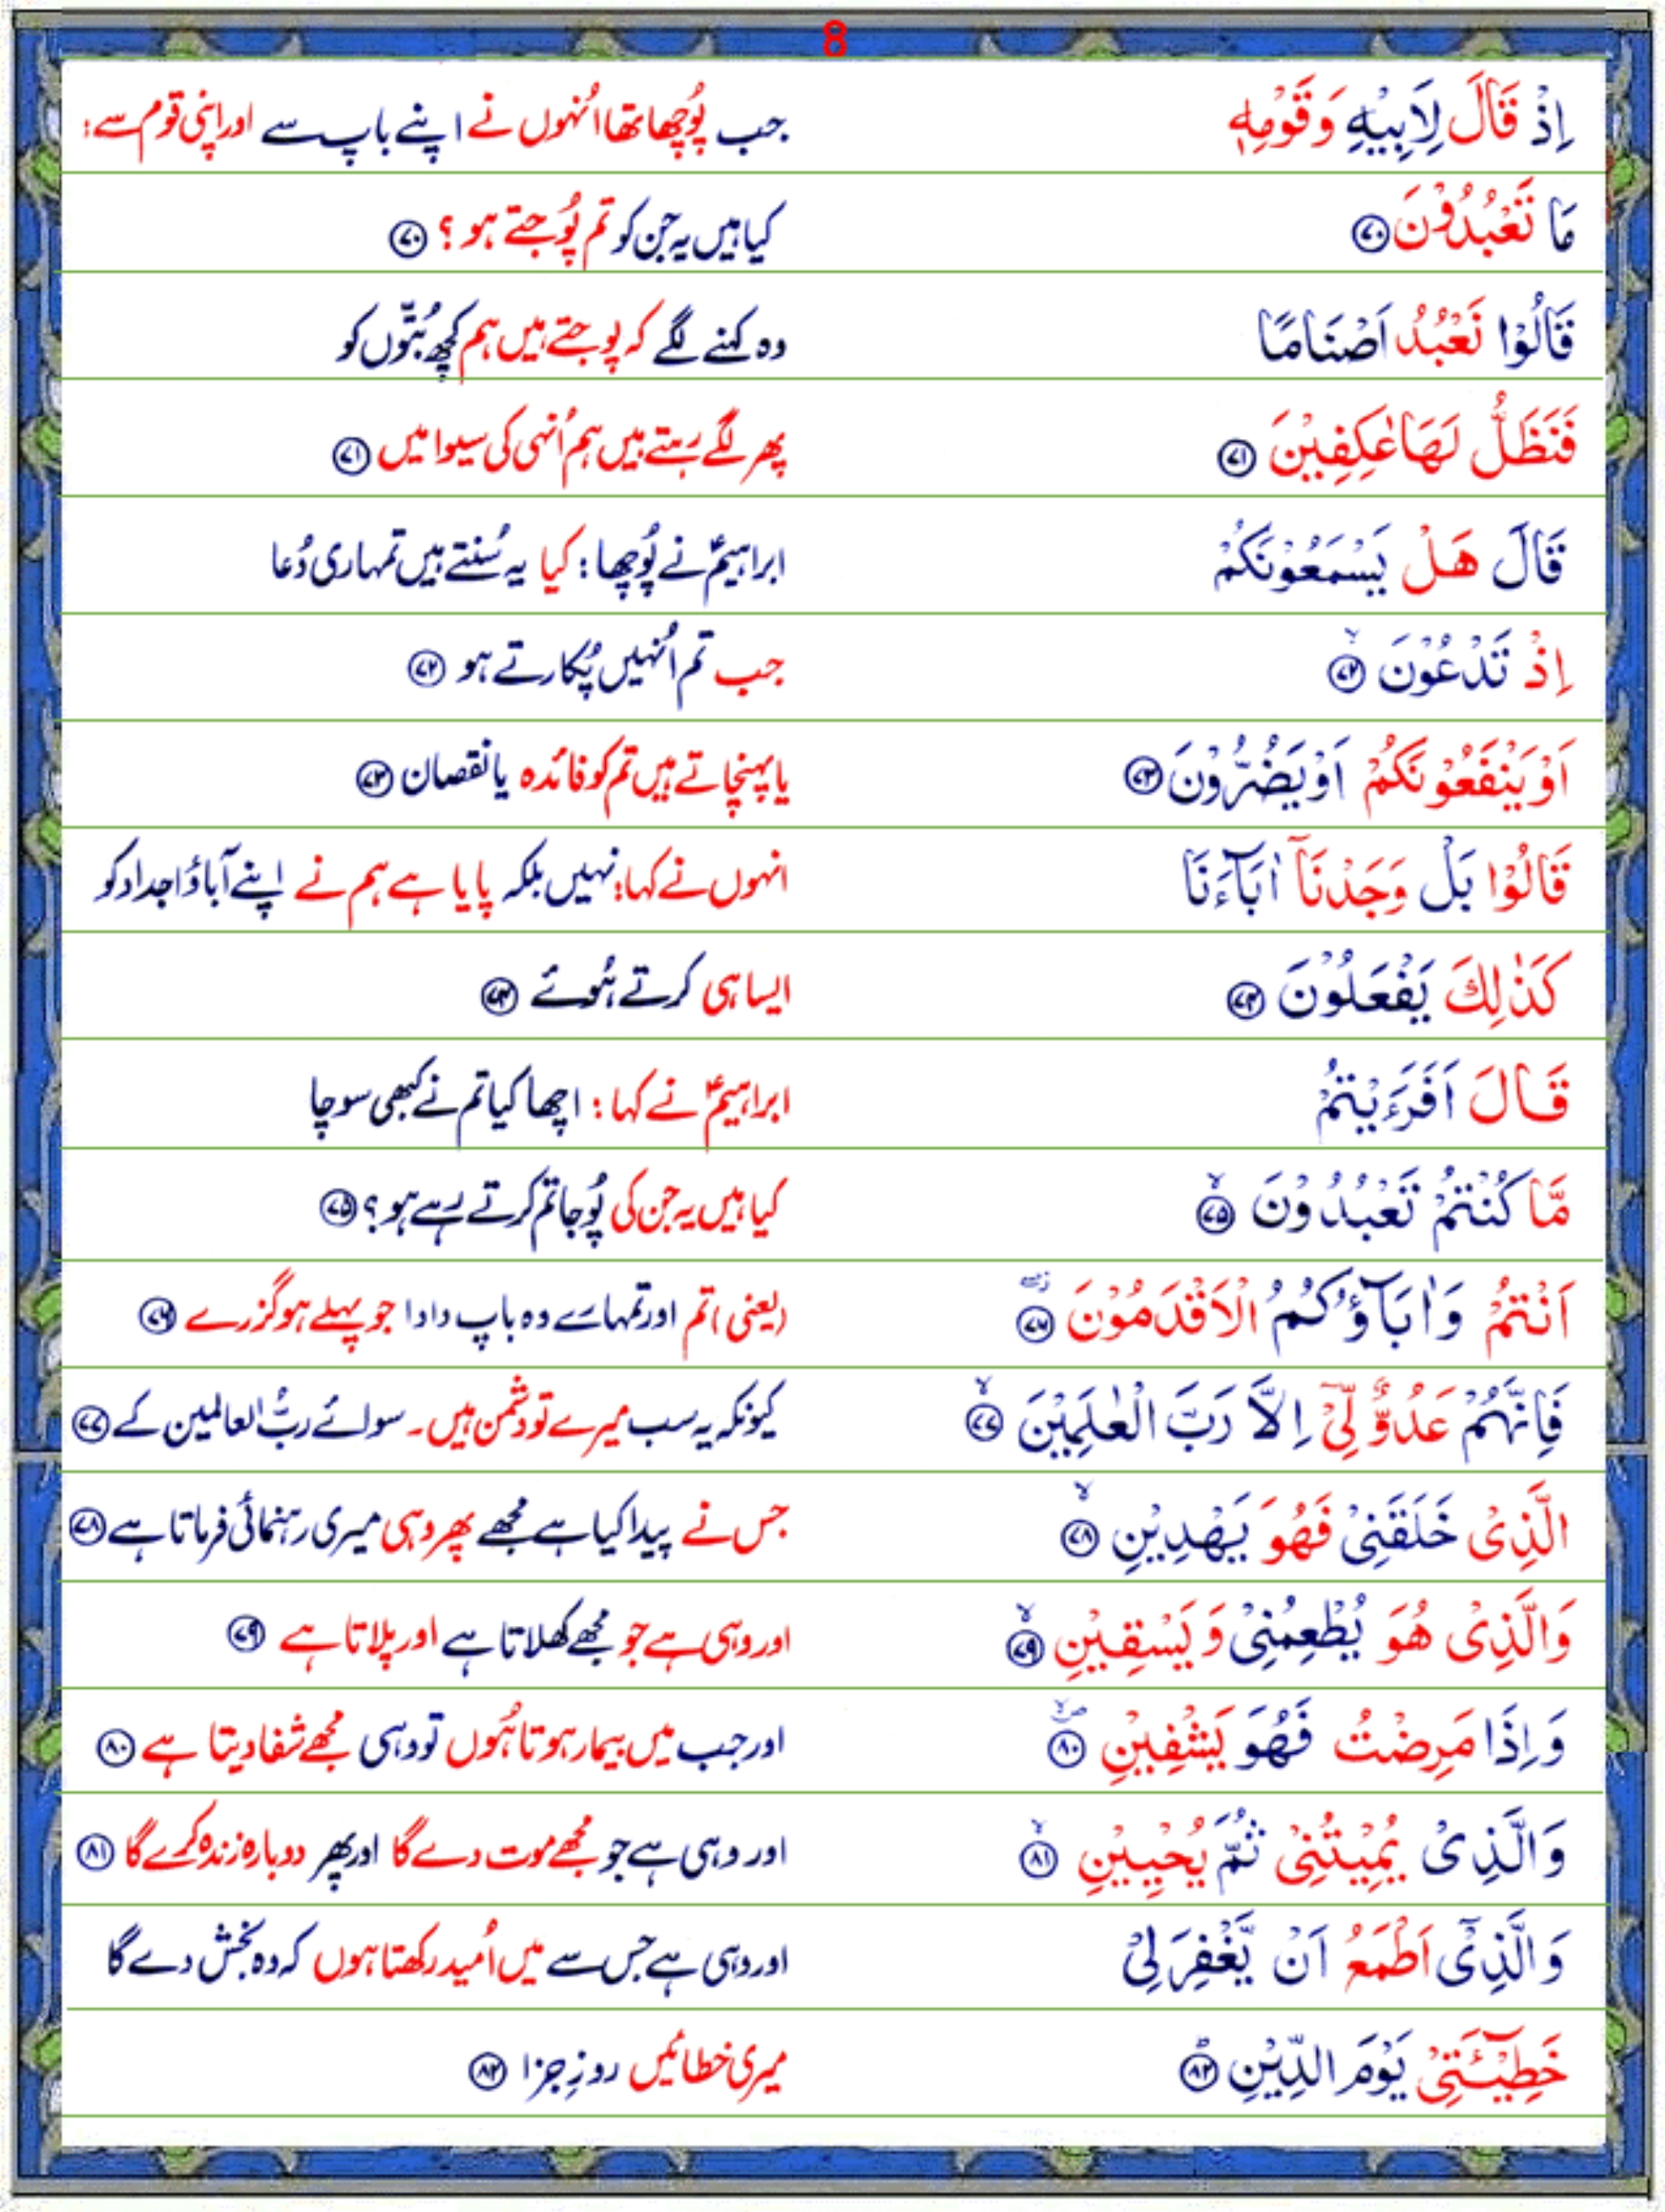 8
اِذْ قَالَ لِاَبِيْهِ وَقَوْمِهٖ
جب پُوچھا تھا اُنہوں نے اپنے باپ سے اور اپنی قوم سے :
مَا تَعْبُدُوْنَ ۷۰
کیا ہیں یہ جن کو تم پُوجتے ہو ؟ ۷۰
قَالُوْا نَعْبُدُ اَصْنَامًا
وہ کہنے لگے کہ پوجتے ہیں ہم کچھ بُتّوں کو
فَنَظَلُّ لَهَا عٰكِفِيْنَ ۷۱
پھر لگے رہتے ہیں ہم اُنہی کی سیوا میں ۷۱
قَالَ هَلْ يَسْمَعُوْنَكُمْ
ابراہیمؑ نے پُوچھا : کیا یہ سُنتے ہیں تمہاری دُعا
اِذْ تَدْعُوْنَ ۙ ۷۲
جب تم اُنہیں پُکارتے ہو ۷۲
اَوْ يَنْفَعُوْنَكُمْ اَوْ يَضُرُّوْنَ ۷۳
یا پہنچاتے ہیں تم کو فائدہ یا نقصان ۷۳
قَالُوْا بَلْ وَجَدْنَآ اٰبَآءَنَا
انہوں نے کہا : نہیں بلکہ پایا ہے ہم نے اپنے آباؤ اجداد کو
كَذٰلِكَ يَفْعَلُوْنَ ۷۴
ایسا ہی کرتے ہُوئے ۷۴
قَالَ اَفَرَءَيْتُمْ
ابراہیمؑ نے کہا : اچھا کیا تم نے کبھی سوچا
مَّا كُنْتُمْ تَعْبُدُوْنَ ۙ ۷۵
کیا ہیں یہ جن کی پُوجا تم کرتے رہے ہو ؟ ۷۵
اَنْتُمْ وَاٰبَآؤُكُمُ الْاَقْدَمُوْنَ ۷۶
(یعنی) تم اور تمہارے وہ باپ دادا جو پہلے ہو گزرے ۷۶
فَاِنَّهُمْ عَدُوٌّ لِّيْٓ اِلَّا رَبَّ الْعٰلَمِيْنَ ۙ ۷۷
کیونکہ یہ سب میرے تو دشمن ہیں۔ سوائے ربُّ العالمین کے ۷۷
الَّذِيْ خَلَقَنِيْ فَهُوَ يَهْدِيْنِ ۙ ۷۸
جس نے پیدا کیا ہے مجھے پھر وہی میری رہنمائی فرماتا ہے ۷۸
وَالَّذِيْ هُوَ يُطْعِمُنِيْ وَيَسْقِيْنِ ۙ ۷۹
اور وہی ہے جو مجھے کھلاتا ہے اور پلاتا ہے ۷۹
وَاِذَا مَرِضْتُ فَهُوَ يَشْفِيْنِ ۸۰
اور جب میں بیمار ہوتا ہُوں تو وہی مجھے شفا دیتا ہے ۸۰
وَالَّذِيْ يُمِيْتُنِيْ ثُمَّ يُحْيِيْنِ ۙ ۸۱
اور وہی ہے جو مجھے موت دے گا اور پھر دوبارہ زندہ کرے گا ۸۱
وَالَّذِيْٓ اَطْمَعُ اَنْ يَّغْفِرَ لِيْ
اور وہی ہے جس سے میں اُمید رکھتا ہوں کہ وہ بخش دے گا
خَطِيْٓـَٔتِيْ يَوْمَ الدِّيْنِ ۸۲
میری خطائیں روزِ جزا ۸۲